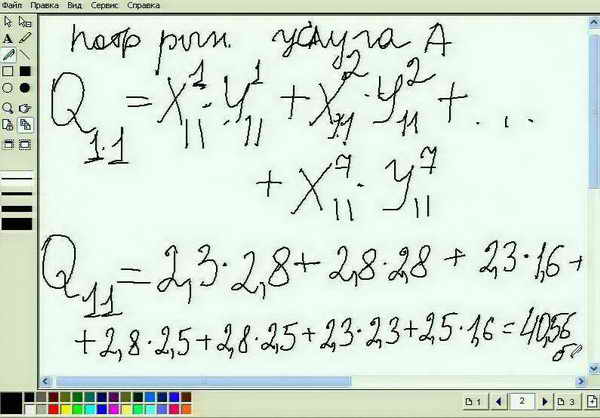 Файл Правка Вид Сервис Справка
потр рын. услуга А
Q₁.₁ = X¹₁₁ · Y¹₁₁ + X²₁₁ · Y²₁₁ + ...
+ X⁷₁₁ · Y⁷₁₁
Q₁₁ = 2,3 · 2,8 + 2,8 · 2,8 + 2,3 · 1,6 +
+ 2,8 · 2,5 + 2,8 · 2,5 + 2,3 · 2,3 + 2,5 · 1,6 = 40,56
1 2 3